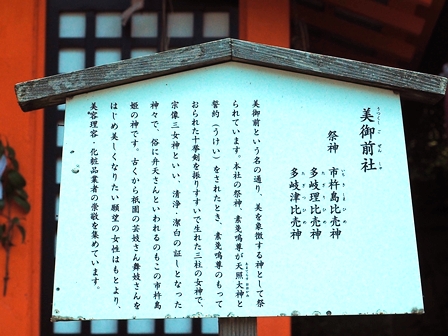 美御前社
うつくしごぜんしゃ
祭神
市杵島比売神
いちきしまひめ
多岐理比売神
たぎりひめ
多岐津比売神
たぎつひめ
美御前という名の通り、美を象徴する神として祭
られています。本社の祭神、素戔嗚尊が天照大神と
誓約(うけい)をされたとき、素戔嗚尊のもって
おられた十拳剣を振りすすいで生れた三柱の女神で、
宗像三女神といい、清浄・潔白の証しとなった
神々で、俗に弁天さんといわれるのもこの市杵島
姫の神です。古くから祇園の芸妓さん舞妓さんを
はじめ美しくなりたい願望の女性はもとより、
美容理容・化粧品業者の崇敬を集めています。